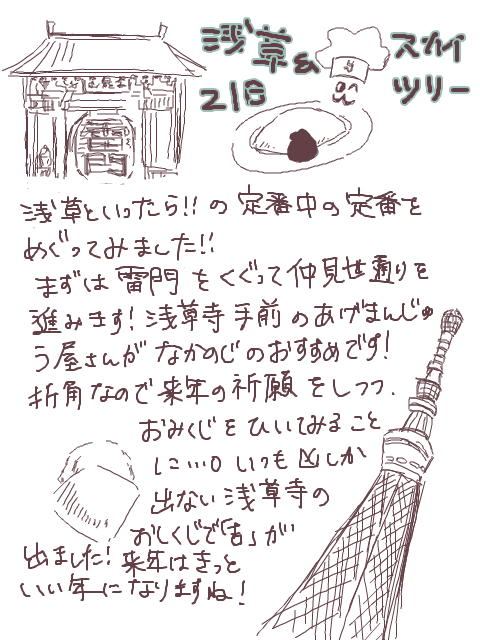 浅草& スカイ
21日 ツリー
浅草といったら!!の定番中の定番を
めぐってみました!!
まずは雷門をくぐって仲見世通りを
進みます!浅草寺手前のあげまんじゅ
う屋さんがなかのじのおすすめです!
折角なので来年の祈願をしつつ、
おみくじをひいてみること
に…。いつも凶しか
出ない浅草寺の
おしくじで「吉」が
出ました!来年はきっと
いい年になりますね!